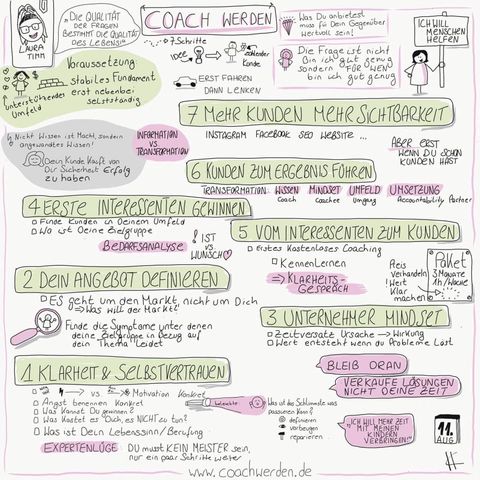 LAURA
TIMM
„DIE QUALITÄT
DER FRAGEN
BESTIMMT DIE QUALITÄT
DES LEBENS!"
COACH WERDEN
7 Schritte
IDEE
zahlender
Kunde
ERST FAHREN
DANN LENKEN
Was Du anbietest
muss für Dein Gegenüber
wertvoll sein!
Die Frage ist nicht
Bin ich gut genug
sondern FÜR WEN
bin ich gut genug
ICH WILL
MENSCHEN
HELFEN
Voraussetzung
stabiles Fundament
erst nebenbei
selbstständig
unterstützendes
Umfeld
Nicht Wissen ist Macht, sondern
angewandtes Wissen!
Dein Kunde kauft von
Dir Sicherheit Erfolg
zu haben
INFORMATION
VS
TRANSFORMATION
7 MEHR KUNDEN MEHR SICHTBARKEIT
INSTAGRAM FACEBOOK SEO WEBSITE ...
ABER ERST
WENN DU SCHON
KUNDEN HAST
6 KUNDEN ZUM ERGEBNIS FÜHREN
TRANSFORMATION WISSEN MINDSET UMFELD UMSETZUNG
Coach Coachee Umgang Accountability Partner
4 ERSTE INTERESSENTEN GEWINNEN
Finde Kunden in Deinem Umfeld
Wo ist Deine Zielgruppe
BEDARFSANALYSE
IST
VS
WUNSCH
5 VOM INTERESSENTEN ZUM KUNDEN
Erstes Kostenloses Coaching
Kennenlernen
⇒ KLARHEITS-
GESPRÄCH
Preis
verhandeln
Wert
klar
machen
Paket
3 Monate
1h/Woche
2 DEIN ANGEBOT DEFINIEREN
ES geht um den Markt, nicht um Dich
⇒ Was will der Markt?
Finde die Symptome unter denen
deine Zielgruppe in Bezug auf
dein Thema Leidet
3 UNTERNEHMER MINDSET
Zeitversatz Ursache → Wirkung
Wert entsteht wenn du Probleme Löst
1 KLARHEIT & SELBSTVERTRAUEN
vs Motivation Konkret
Angst benennen Konkret
Was Kannst Du gewinnen?
Was Kostet es Dich, es NICHT zu tun?
Was ist Dein Lebenssinn/Berufung
beleuchte
Was ist das Schlimmste was
passieren Kann?
definieren
vorbeugen
reparieren
BLEIB DRAN
VERKAUFE LÖSUNGEN
NICHT DEINE ZEIT
„ICH WILL MEHR ZEIT
MIT MEINEN
KINDERN
VERBRINGEN"
11.
AUG.
EXPERTENLÜGE DU musst KEIN MEISTER sein,
nur ein paar Schritte weiter
www.coachwerden.de